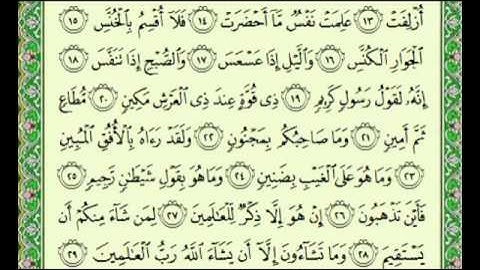 أُزْلِفَتْ ١٣ عَلِمَتْ نَفْسٌ مَّآ أَحْضَرَتْ ١٤ فَلَآ أُقْسِمُ بِٱلْخُنَّسِ ١٥
ٱلْجَوَارِ ٱلْكُنَّسِ ١٦ وَٱلَّيْلِ إِذَا عَسْعَسَ ١٧ وَٱلصُّبْحِ إِذَا تَنَفَّسَ ١٨
إِنَّهُۥ لَقَوْلُ رَسُولٍ كَرِيمٍ ١٩ ذِى قُوَّةٍ عِندَ ذِى ٱلْعَرْشِ مَكِينٍ ٢٠ مُّطَاعٍ
ثَمَّ أَمِينٍ ٢١ وَمَا صَاحِبُكُم بِمَجْنُونٍ ٢٢ وَلَقَدْ رَءَاهُ بِٱلْأُفُقِ ٱلْمُبِينِ
٢٣ وَمَا هُوَ عَلَى ٱلْغَيْبِ بِضَنِينٍ ٢٤ وَمَا هُوَ بِقَوْلِ شَيْطَٰنٍ رَّجِيمٍ ٢٥
فَأَيْنَ تَذْهَبُونَ ٢٦ إِنْ هُوَ إِلَّا ذِكْرٌ لِّلْعَٰلَمِينَ ٢٧ لِمَن شَآءَ مِنكُمْ أَن
يَسْتَقِيمَ ٢٨ وَمَا تَشَآءُونَ إِلَّآ أَن يَشَآءَ ٱللَّهُ رَبُّ ٱلْعَٰلَمِينَ ٢٩